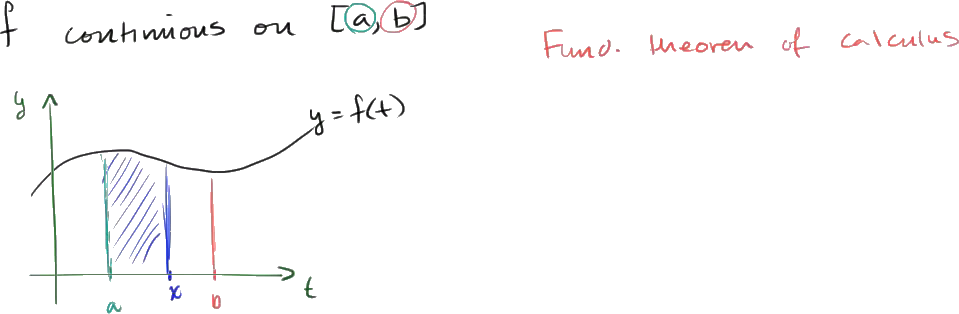 f continuous on [a, b]
Fund. theorem of calculus
y
y = f(t)
t
a
x
b